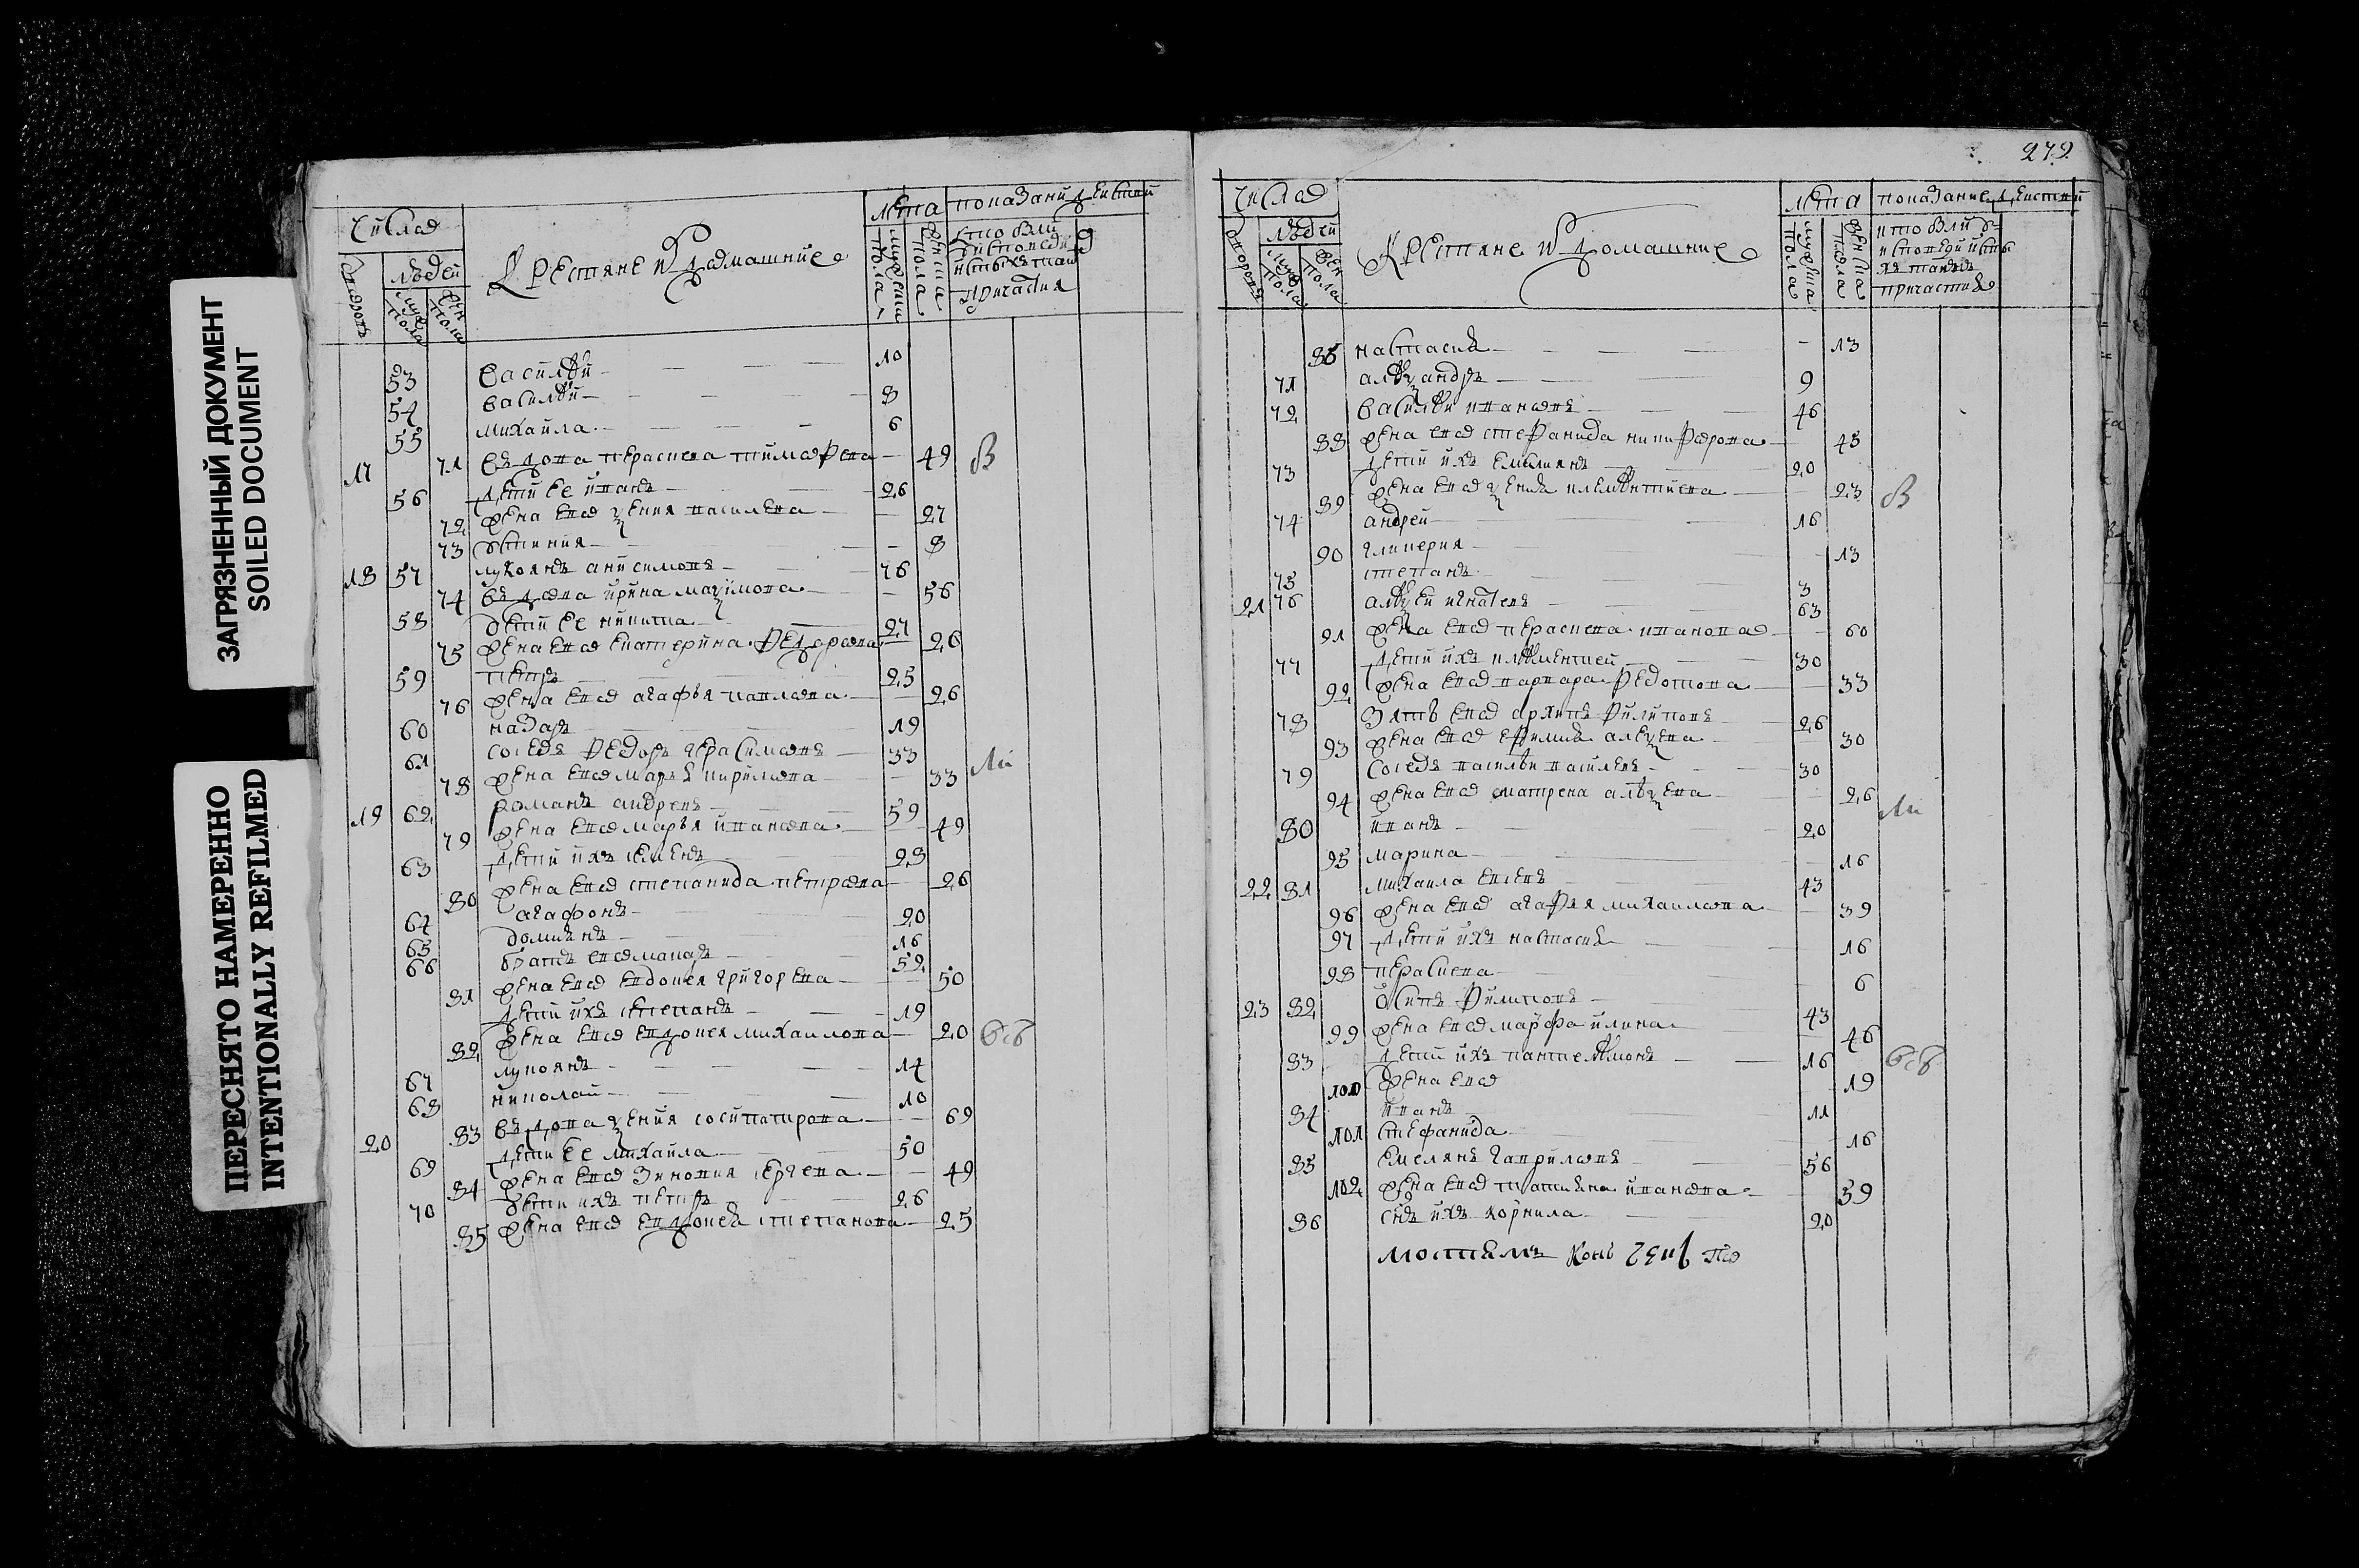 ЗАГРЯЗНЕННЫЙ ДОКУМЕНТ
SOILED DOCUMENT
ПЕРЕСНЯТО НАМЕРЕННО
INTENTIONALLY REFILMED
Числа
людей
муж пола
жен пола
Крестяне и домашние
лета
показани действи
53 василей 10
54 василей 8
55 михаила 6
17 71 вдова пераскева тимофева 49
56 дети ее иванъ 26
72 жена ево ксения василева 27
73 устиния 8
18 57 лукоянъ анисимовъ 76
74 вдова ирина маѯимова 56
58 дети ее никита 27
75 жена ево екатерина федорова 26
59 петръ 25
76 жена ево агафья павлова 26
60 назаръ 19
61 соседъ федоръ герасимовъ 33
78 жена ево марья кирилова 33
19 62 романъ андревъ 59
79 жена ево марья иванова 49
63 дети ихъ семенъ 28
80 жена ево степанида петрова 26
64 агафонъ 20
65 домиянъ 16
66 братъ ево макаръ 52
81 жена ево евдокея григорева 50
дети ихъ степанъ 19
82 жена ево евдокея михаилова 20
67 лукоянъ 14
68 николаи 10
20 83 вдова ксения сосипатрова 69
69 дети ее михаила 50
84 жена ево зиновия сергева 49
70 дети ихъ петръ 26
85 жена ево евдокея степанова 25
272
Числа
людей
муж пола
жен пола
Крестяне и домашние
лета
показание действи
86 настасия 13
71 алеѯандръ 9
72 василеи ивановъ 46
88 жена ево стефанида никифорова 43
73 дети ихъ емелиянъ 20
89 жена ево ксения клементиева 23
74 андреи 16
90 гликерия 13
75 степанъ 3
21 76 алеѯеи игнатевъ 63
91 жена ево пераскева иванова 60
77 дети ихъ клементеи 30
92 жена ево варвара федотова 33
78 зять ево архипъ филиповъ 26
93 жена ево ефимия алеѯева 30
79 соседъ василеи василевъ 30
94 жена ево матрена алеѯева 26
80 иванъ 20
95 марина 16
22 81 михаила евсевъ 43
96 жена ево агафия михаилова 39
97 дети ихъ настасия 16
98 пераскева 6
23 82 осипъ филиповъ 43
99 жена ево марфа илина 46
83 дети ихъ пантелеимонъ 16
100 жена ево 19
84 иванъ 11
101 стефанида 16
85 емелянъ гавриловъ 56
102 жена ево татияна иванова 59
86 снъ ихъ корнила 20